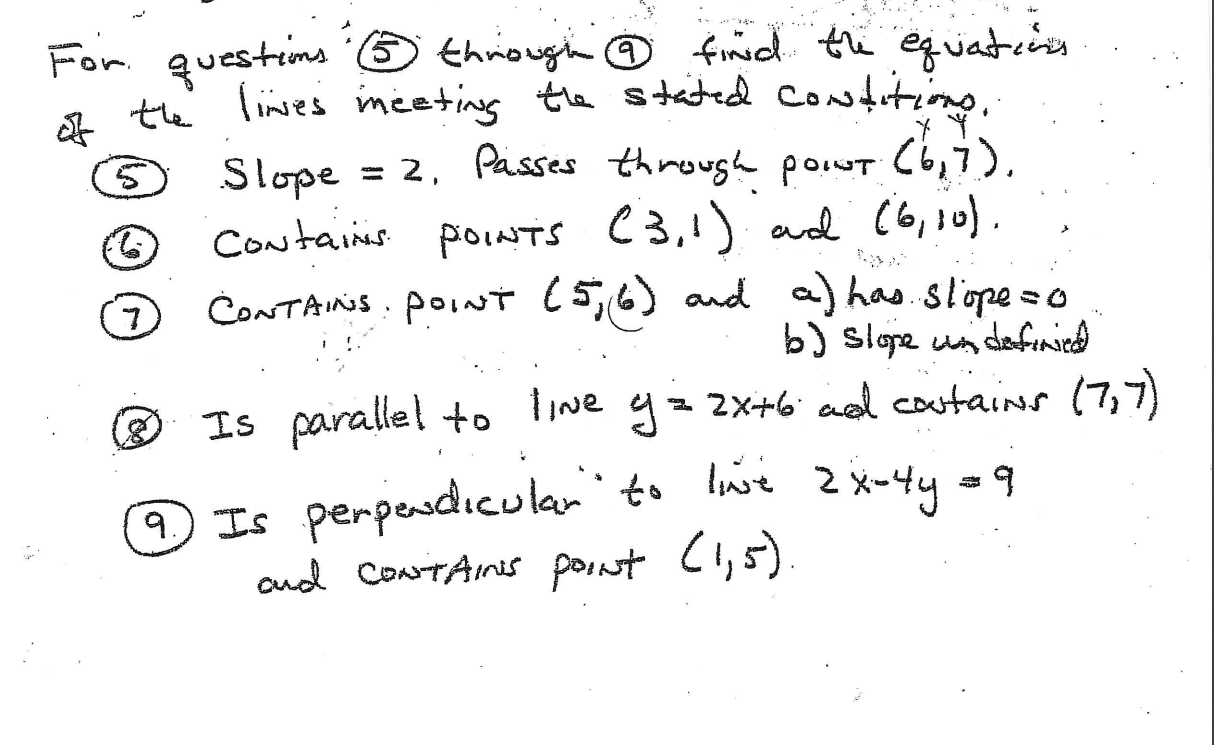 For questions ⑤ through ⑨ find the equations
of the lines meeting the stated conditions.
⑤ Slope = 2. Passes through point (6,7).
⑥ Contains points (3,1) and (6,10).
⑦ Contains point (5,6) and a) has slope = 0
b) slope undefined
⑧ Is parallel to line y = 2x+6 and contains (7,7)
⑨ Is perpendicular to line 2x-4y = 9
and contains point (1,5).